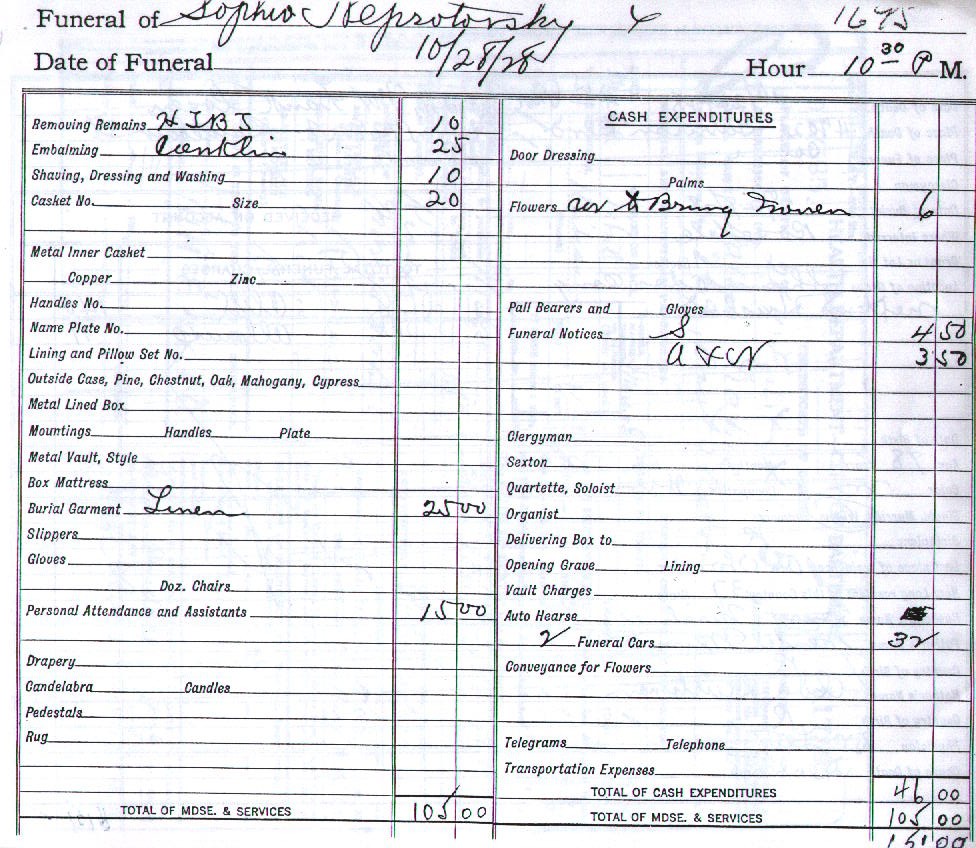 Funeral of Sophie Reprotovsky 1675
Date of Funeral 10/28/28 Hour 10 30 P M.
Removing Remains H J B J 10
Embalming Conklin 25
Shaving, Dressing and Washing 10
Casket No. Size 20
Metal Inner Casket
Copper Zinc
Handles No.
Name Plate No.
Lining and Pillow Set No.
Outside Case, Pine, Chestnut, Oak, Mahogany, Cypress
Metal Lined Box
Mountings Handles Plate
Metal Vault, Style
Box Mattress
Burial Garment Linen 25 00
Slippers
Gloves
Doz. Chairs
Personal Attendance and Assistants 15 00
Drapery
Candelabra Candles
Pedestals
Rug
TOTAL OF MDSE. & SERVICES 105 00
CASH EXPENDITURES
Door Dressing
Palms
Flowers car to Bring 6
Pall Bearers and Gloves
Funeral Notices S 4 50
3 50
Clergyman
Sexton
Quartette, Soloist
Organist
Delivering Box to
Opening Grave Lining
Vault Charges
Auto Hearse
2 Funeral Cars 32
Conveyance for Flowers
Telegrams Telephone
Transportation Expenses
TOTAL OF CASH EXPENDITURES 46 00
TOTAL OF MDSE. & SERVICES 105 00
151 00